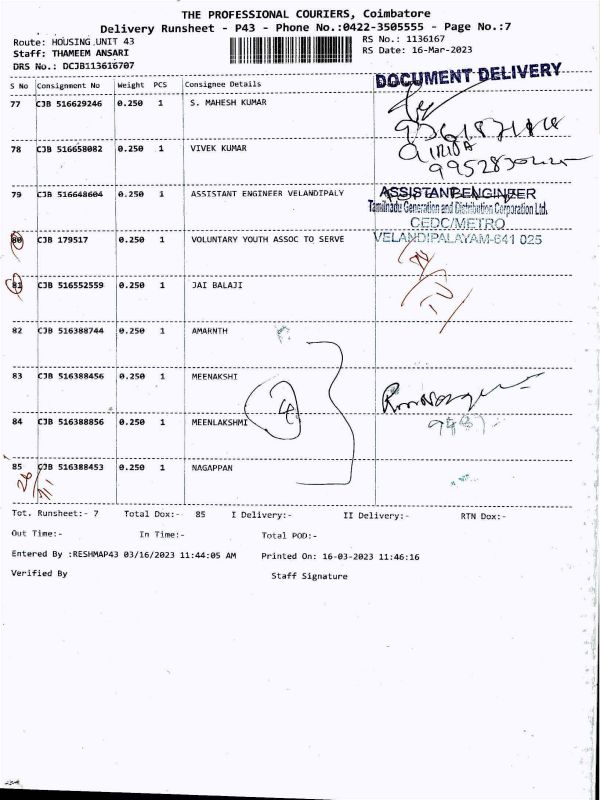 THE PROFESSIONAL COURIERS, Coimbatore
Delivery Runsheet - P43 - Phone No.:0422-3505555 - Page No.:7
Route: HOUSING UNIT 43 RS No.: 1136167
Staff: THAMEEM ANSARI RS Date: 16-Mar-2023
DRS No.: DCJB113616707
DOCUMENT DELIVERY
S No Consignment No Weight PCS Consignee Details
77 CJB 516629246 0.250 1 S. MAHESH KUMAR
78 CJB 516658082 0.250 1 VIVEK KUMAR
79 CJB 516648604 0.250 1 ASSISTANT ENGINEER VELANDIPALY
ASSISTANT ENGINEER
Tamilnadu Generation and Distribution Corporation Ltd.
CEDC/METRO
VELANDIPALAYAM-641 025
80 CJB 179517 0.250 1 VOLUNTARY YOUTH ASSOC TO SERVE
81 CJB 516552559 0.250 1 JAI BALAJI
82 CJB 516388744 0.250 1 AMARNTH
83 CJB 516388456 0.250 1 MEENAKSHI
84 CJB 516388856 0.250 1 MEENLAKSHMI
4
85 CJB 516388453 0.250 1 NAGAPPAN
Tot. Runsheet:- 7 Total Dox:- 85 I Delivery:- II Delivery:- RTN Dox:-
Out Time:- In Time:- Total POD:-
Entered By :RESHMAP43 03/16/2023 11:44:05 AM Printed On: 16-03-2023 11:46:16
Verified By Staff Signature